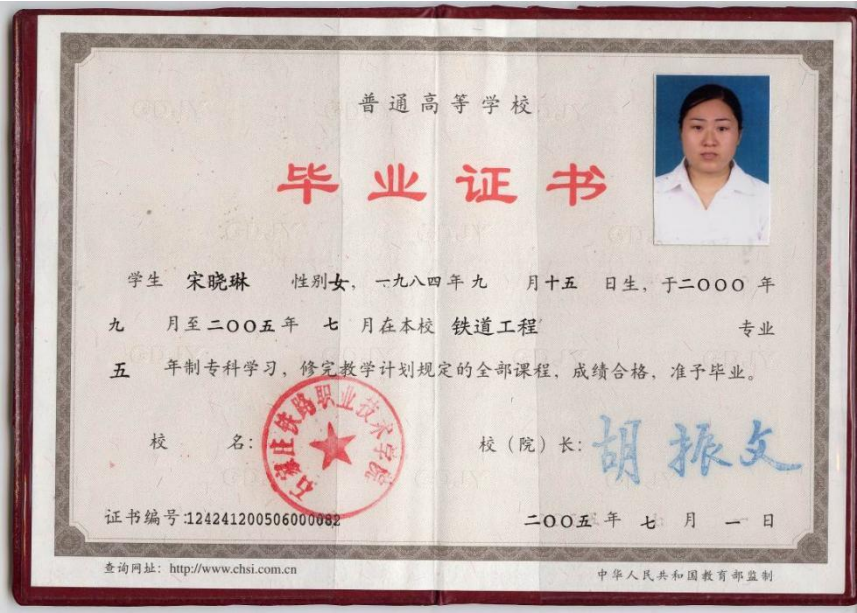 普通高等学校
毕业证书
学生 宋晓琳 性别女，一九八四年九 月十五 日生，于二〇〇〇年
九 月至二〇〇五年 七 月在本校 铁道工程 专业
五 年制专科学习，修完教学计划规定的全部课程，成绩合格，准予毕业。
校 名：
石家庄铁路职业技术学院
校（院）长：胡振文
证书编号:124241200506000082
二〇〇五年 七 月 一 日
查询网址：http://www.chsi.com.cn
中华人民共和国教育部监制